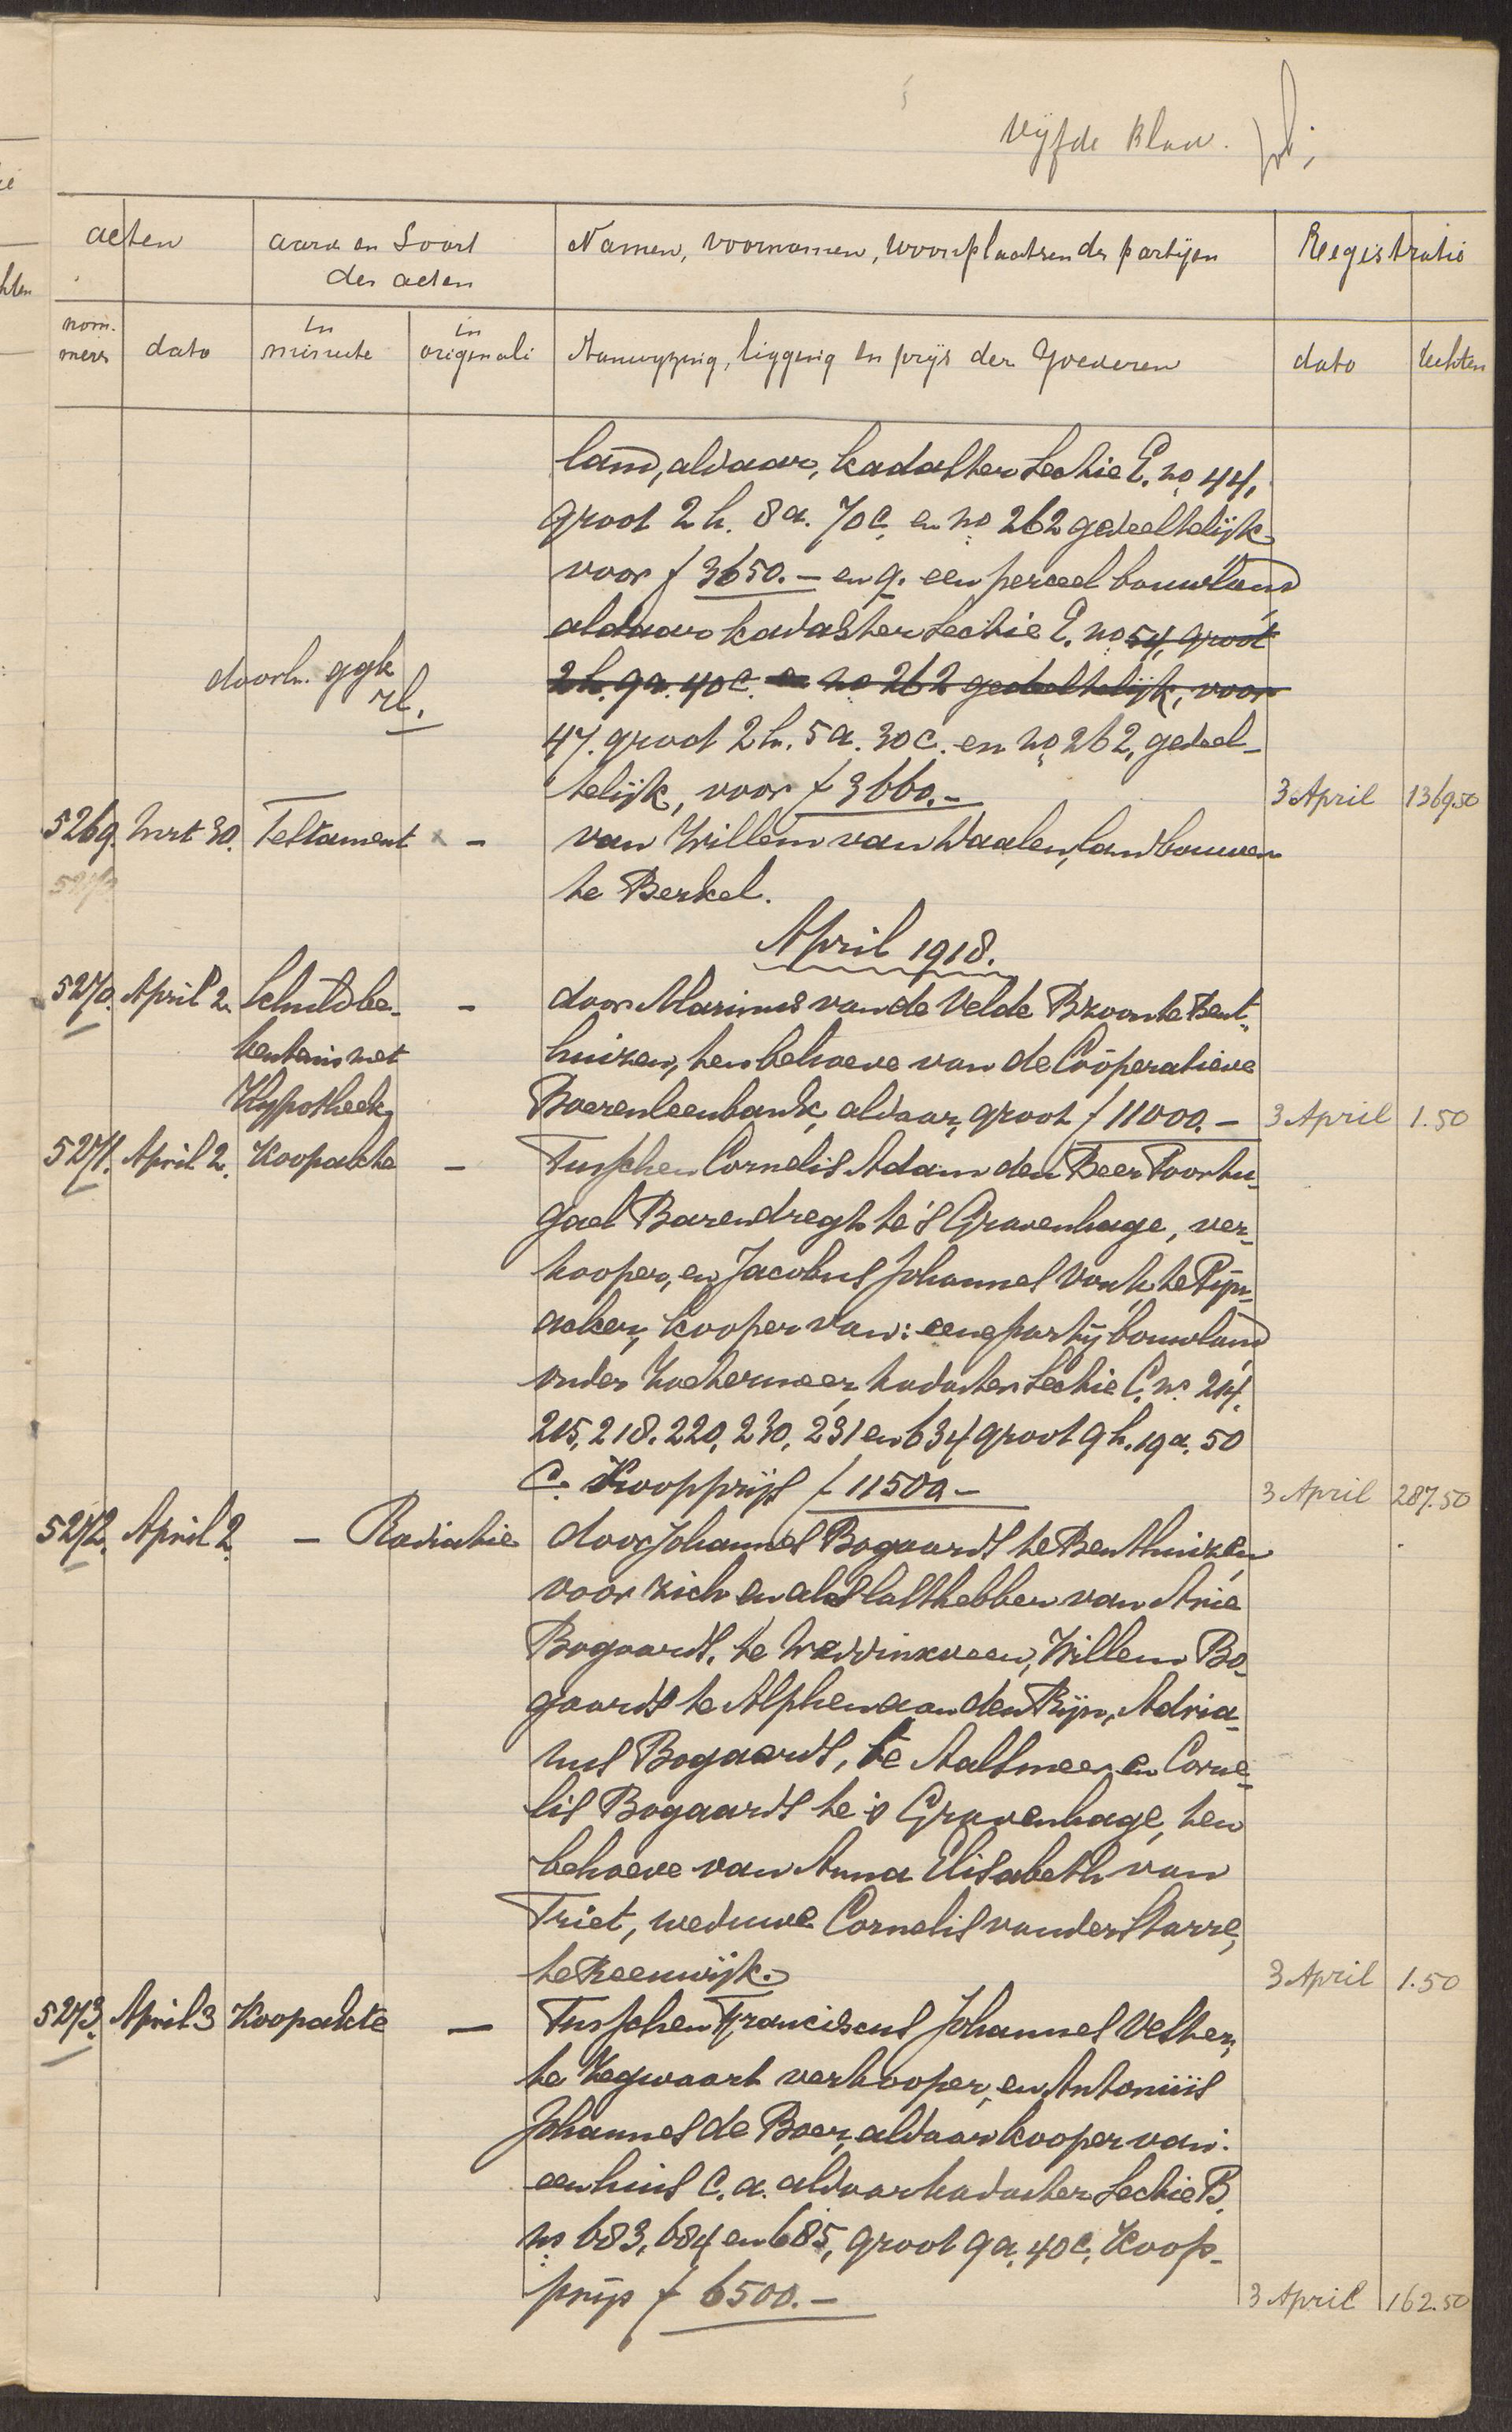 vijfde blad.
acten
aard en Soort
der acten
Namen, voornamen, woonplaatsen der partijen
Registratie
nom.
mers
dato
in
minute
in
originali
Aanwijzing, ligging en prijs der Goederen
dato
rechten
land, aldaar, kadaster Sectie E. no 44,
groot 2 h. 8 a. 70 c. en no 262 gedeeltelijk
voor f 3650.— en q. een perceel bouwland
aldaar kadaster Sectie E. no 54, groot
2 h. 9 a. 40 c. en no 262 gedeeltelijk, voor
doorh. ggk
rl.
47. groot 2 h. 5 a. 30 c. en no 262, gedeel-
telijk, voor f 3660.— 3 April 1369.50
5269. Mrt 30. Testament x — van Willem van Daalen, landbouwer
te Berkel.
April 1918.
5270. April 2. Schuldbe- — door Marinus van de Velde Bzoon te Bent-
kentenis met huizen, ten behoeve van de Coöperatieve
Hypotheek Boerenleenbank, aldaar, groot f 11000.— 3 April 1.50
5271. April 2. Koopakte — Tusschen Cornelis Adam den Beer Poortu-
gael Barendregt te 's Gravenhage, ver-
kooper, en Jacobus Johannes Vonk te Pijn-
acker, kooper van: eene partij bouwland
onder Zoetermeer, kadaster Sectie C. no. 214.
215, 218. 220, 230, 231 en 634 groot 9 h. 19 a. 50
c. Koopprijs f 11500.— 3 April 287.50
5272. April 2. — Radiatie door Johannes Bogaards te Benthuizen
voor zich en als lasthebber van Arie
Bogaards, te Waddinxveen, Willem Bo-
gaards te Alphen aan den Rijn, Adria-
nus Bogaards, te Aalsmeer en Corne-
lis Bogaards te 's Gravenhage, ten
behoeve van Anna Elisabeth van
Triet, weduwe Cornelis van der Starre,
te Reeuwijk. 3 April 1.50
5273. April 3 Koopakte — Tusschen Franciscus Johannes Velther,
te Zegwaart verkooper, en Antonius
Johannes de Boer, aldaar kooper van:
een huis c.a. aldaar kadaster Sectie B.
no 683, 684 en 685, groot 9 a. 40 c, Koop-
prijs f 6500.— 3 April 162.50